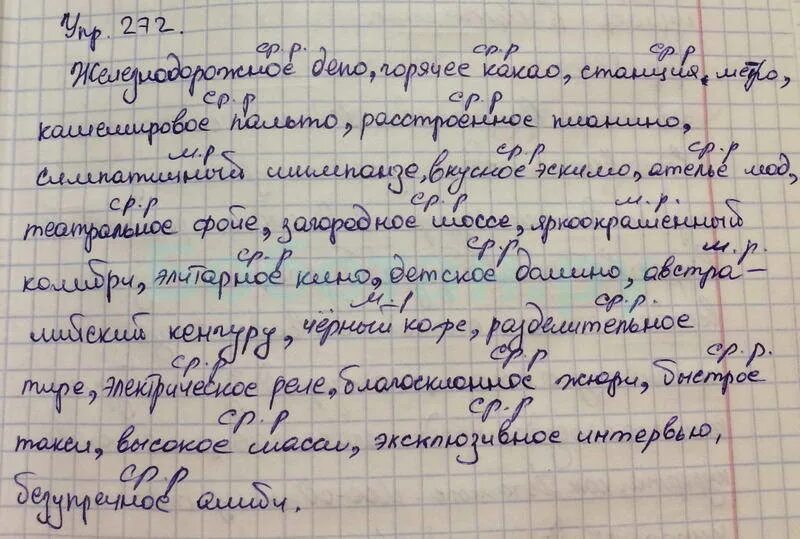 Упр. 272.
ср.р. ср.р ср.р
Железнодорожное депо, горячее какао, станция метро,
ср.р ср.р
кашемировое пальто, расстроенное пианино,
м.р ср.р ср.р
симпатичный шимпанзе, вкусное эскимо, ателье мод,
ср.р ср.р м.р.
театральное фойе, загородное шоссе, яркоокрашенный
ср.р ср.р. м.р.
колибри, элитарное кино, детское домино, австра-
м-р ср.р.
лийский кенгуру, чёрный кофе, разделительное
ср.р ср.р ср.р.
тире, электрическое реле, благосклонное жюри, быстрое
ср.р ср.р
такси, высокое масси, эксклюзивное интервью,
ср.р
безупречное алиби.